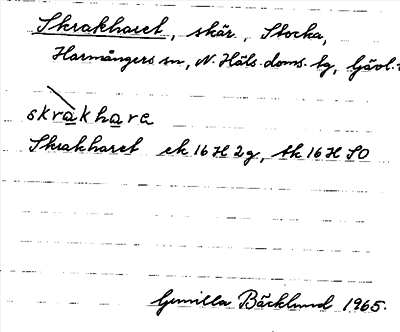 Skrakharet, skär, Stocka,
Harmångers sn, N. Häls. doms. bg, Gävl.
skrakhare
Skrakharet ek 16 H 2 g, tk 16 H SO
Gunilla Bäcklund 1965.